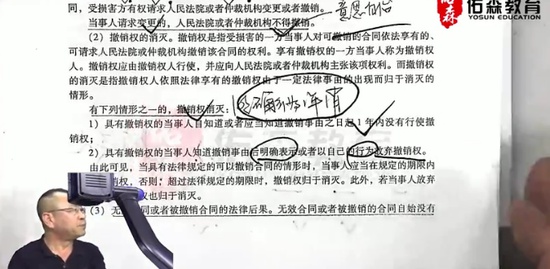 佑森教育
同，受损害方有权请求人民法院或者仲裁机构变更或者撤销。
当事人请求变更的，人民法院或者仲裁机构不得撤销。
（2）撤销权的消灭。撤销权是指受损害的一方当事人对可撤销的合同依法享有的、
可请求人民法院或仲裁机构撤销该合同的权利。享有撤销权的一方当事人称为撤销权
人。撤销权应由撤销权人行使，并应向人民法院或者仲裁机构主张该项权利。而撤销权
的消灭是指撤销权人依照法律享有的撤销权由于一定法律事由的出现而归于消灭的
情形。
有下列情形之一的，撤销权消灭：
1）具有撤销权的当事人自知道或者应当知道撤销事由之日起1年内没有行使撤
销权；
2）具有撤销权的当事人知道撤销事由后明确表示或者以自己的行为放弃撤销权。
由此可见，当具有法律规定的可以撤销合同的情形时，当事人应当在规定的期限内
销权，否则，超过法律规定的期限时，撤销权归于消灭。此外，若当事人放弃
权也归于消灭。
（3）无效合同或者被撤销合同的法律后果。无效合同或者被撤销的合同自始没有